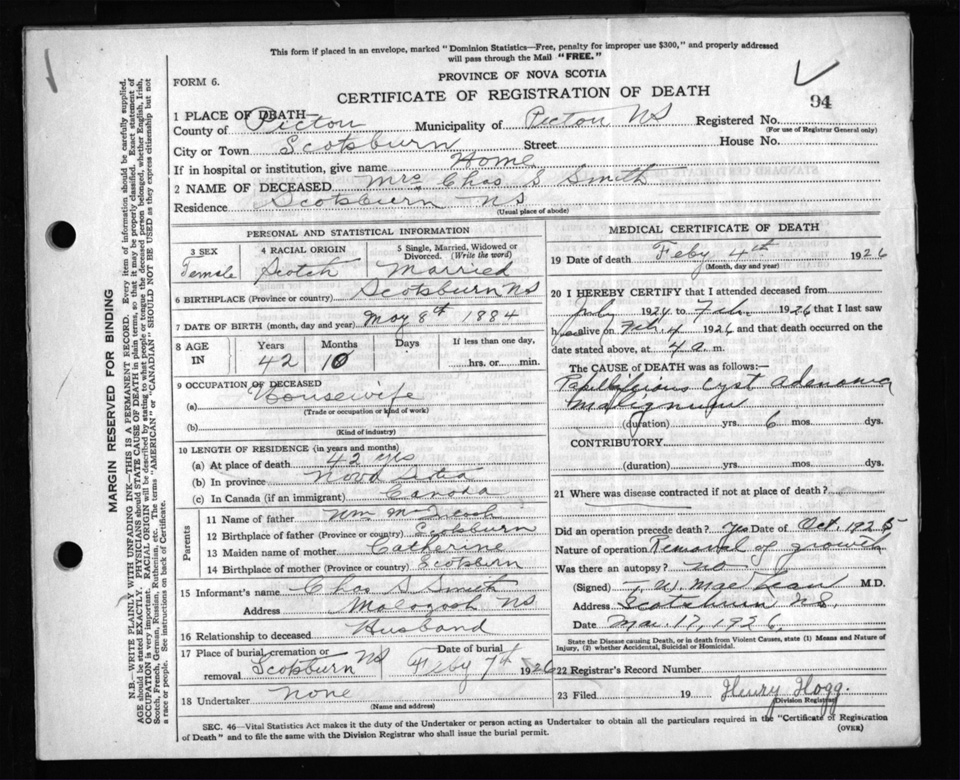 This form if placed in an envelope, marked "Dominion Statistics—Free, penalty for improper use $300," and properly addressed
will pass through the Mail "FREE."
FORM 6.
PROVINCE OF NOVA SCOTIA
CERTIFICATE OF REGISTRATION OF DEATH
94
1 PLACE OF DEATH—
County of Pictou Municipality of Pictou NS Registered No.
(For use of Registrar General only)
City or Town Scotsburn Street House No.
If in hospital or institution, give name Home
2 NAME OF DECEASED Mrs Chas S Smith
Residence Scotsburn NS
(Usual place of abode)
PERSONAL AND STATISTICAL INFORMATION
3 SEX Female
4 RACIAL ORIGIN Scotch
5 Single, Married, Widowed or Divorced. (Write the word) Married
6 BIRTHPLACE (Province or country) Scotsburn NS
7 DATE OF BIRTH (month, day and year) May 8th 1884
8 AGE IN Years 42 Months 10 Days If less than one day, hrs. or min.
9 OCCUPATION OF DECEASED
(a) Housewife
(Trade or occupation or kind of work)
(b)
(Kind of industry)
10 LENGTH OF RESIDENCE (in years and months)
(a) At place of death 42 yrs
(b) In province Nova Scotia
(c) In Canada (if an immigrant) Canada
Parents
11 Name of father Wm
12 Birthplace of father (Province or country) Scotsburn
13 Maiden name of mother Catherine
14 Birthplace of mother (Province or country) Scotsburn
15 Informant's name Chas S Smith
Address Malagash NS
16 Relationship to deceased Husband
17 Place of burial, cremation or removal Scotsburn NS Date of burial Feby 7th 1926
18 Undertaker None
(Name and address)
MEDICAL CERTIFICATE OF DEATH
19 Date of death Feby 4th 1926
(Month, day and year)
20 I HEREBY CERTIFY that I attended deceased from
July 1924 to Feb. 1926 that I last saw
h alive on Feb. 4 1926 and that death occurred on the
date stated above, at 4 a m.
The CAUSE OF DEATH was as follows:—
Papilliferous cyst adenoma
Malignum
(duration) yrs. 6 mos. dys.
CONTRIBUTORY
(duration) yrs. mos. dys.
21 Where was disease contracted if not at place of death?
Did an operation precede death? Yes Date of Oct. 1925
Nature of operation Removal of growth
Was there an autopsy? no
(Signed) T. W. MacLean M.D.
Address Scotsburn N.S.
Date Mar. 17, 1926
State the Disease causing Death, or in death from Violent Causes, state (1) Means and Nature of
Injury, (2) whether Accidental, Suicidal or Homicidal.
22 Registrar's Record Number
23 Filed 19 Henry Hogg.
Division Registrar
SEC. 46—Vital Statistics Act makes it the duty of the Undertaker or person acting as Undertaker to obtain all the particulars required in the "Certificate of Registration
of Death" and to file the same with the Division Registrar who shall issue the burial permit.
(OVER)
MARGIN RESERVED FOR BINDING
N.B.—WRITE PLAINLY WITH UNFADING INK—THIS IS A PERMANENT RECORD. Every item of information should be carefully supplied.
AGE should be stated EXACTLY. PHYSICIANS should STATE CAUSE OF DEATH in plain terms, so that it may be properly classified. Exact statement of
OCCUPATION is very important. RACIAL ORIGIN will be described by stating to what people or tongue the deceased person belonged, whether English, Irish,
Scotch, French, German, Russian, Ruthenian, etc. The terms "AMERICAN" or "CANADIAN" SHOULD NOT BE USED as they express citizenship but not
a race or people. See instructions on back of Certificate.